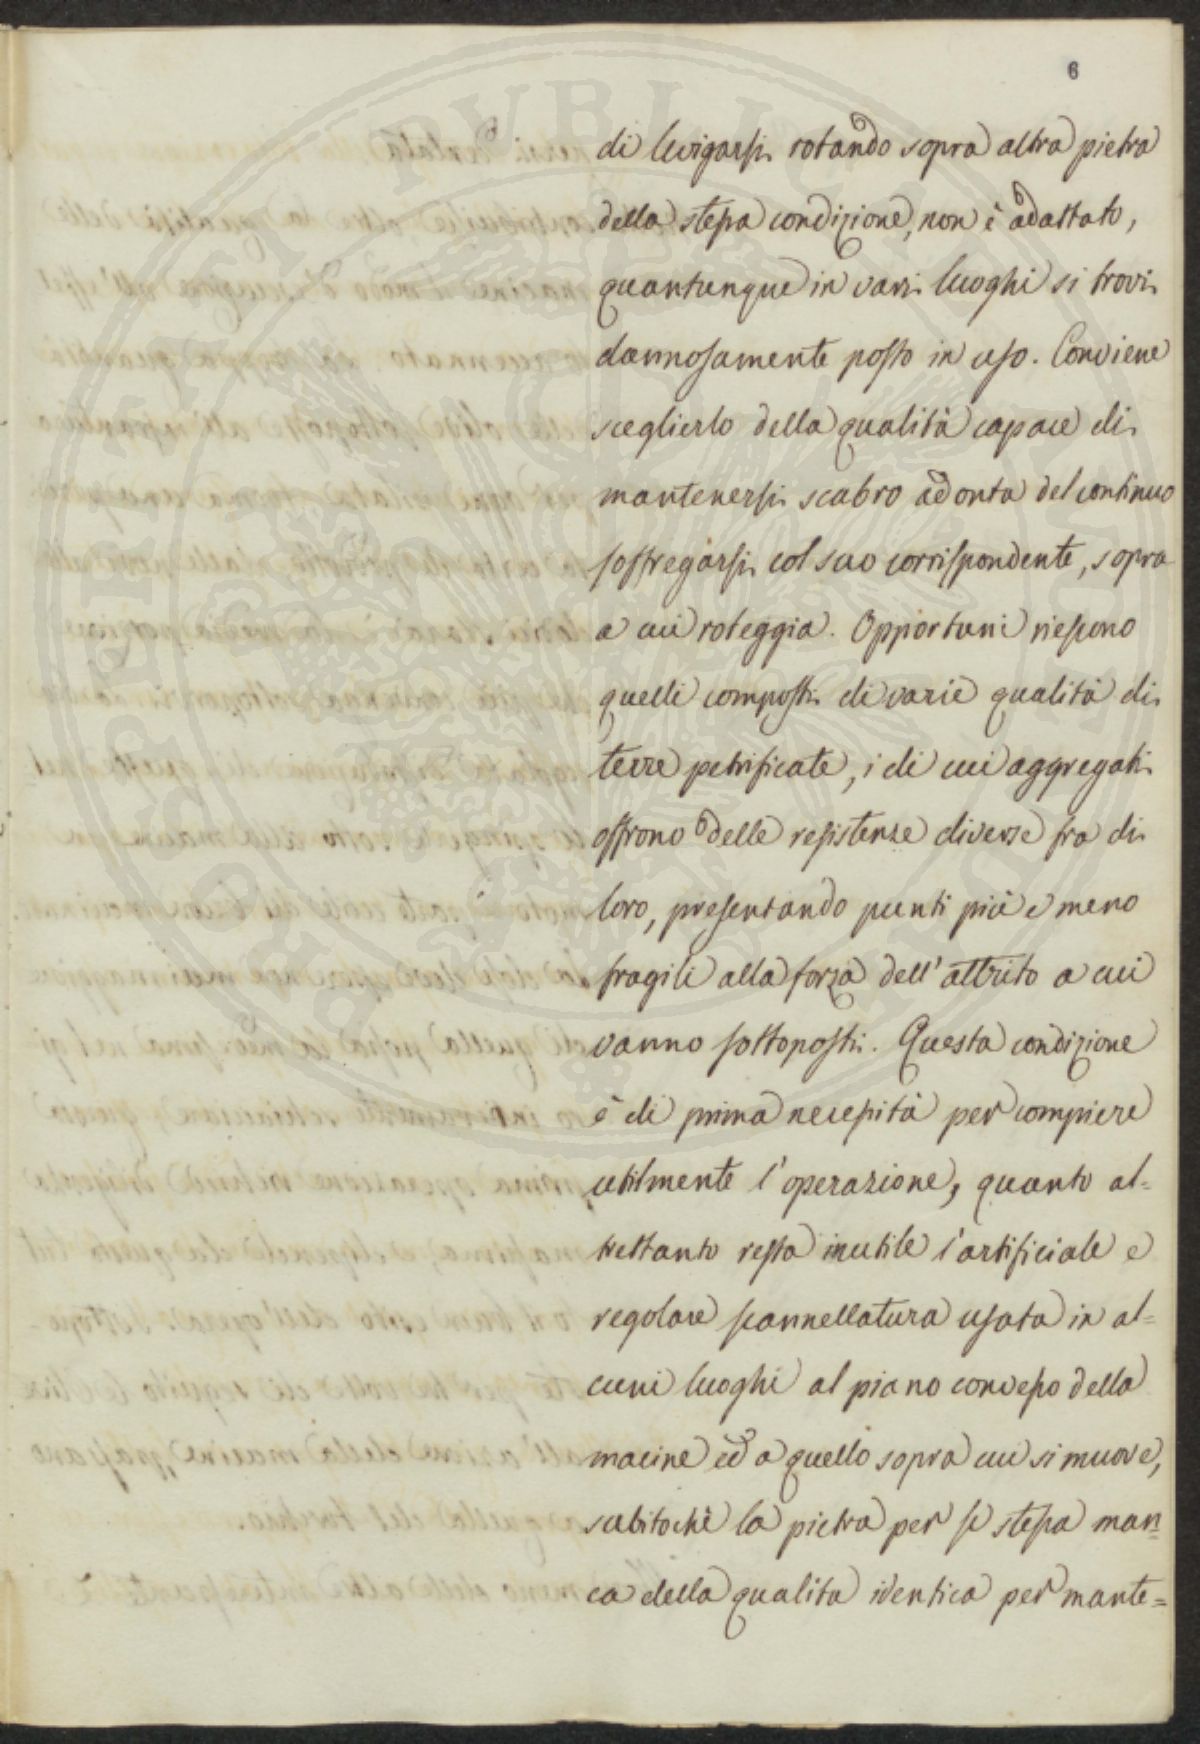 6
di levigarsi rotando sopra altra pietra
della stessa condizione, non è adattato,
quantunque in varj luoghi si trovi
dannosamente posto in uso. Conviene
sceglierlo della qualità capace di
mantenersi scabro ad onta del continuo
soffregarsi col suo corrispondente, sopra
a cui roteggia. Opportuni riescono
quelli composti di varie qualità di
terre petrificate, i di cui aggregati
offrono delle resistenze diverse fra di
loro, presentando punti più e meno
fragili alla forza dell'attrito a cui
vanno sottoposti. Questa condizione
è di prima necessità per compiere
utilmente l'operazione, quanto al=
trettanto resta inutile l'artificiale e
regolare scannellatura usata in al=
cuni luoghi al piano convesso della
macine ed a quello sopra cui si muove,
subitochè la pietra per se stessa man=
ca della qualita identica per mante=